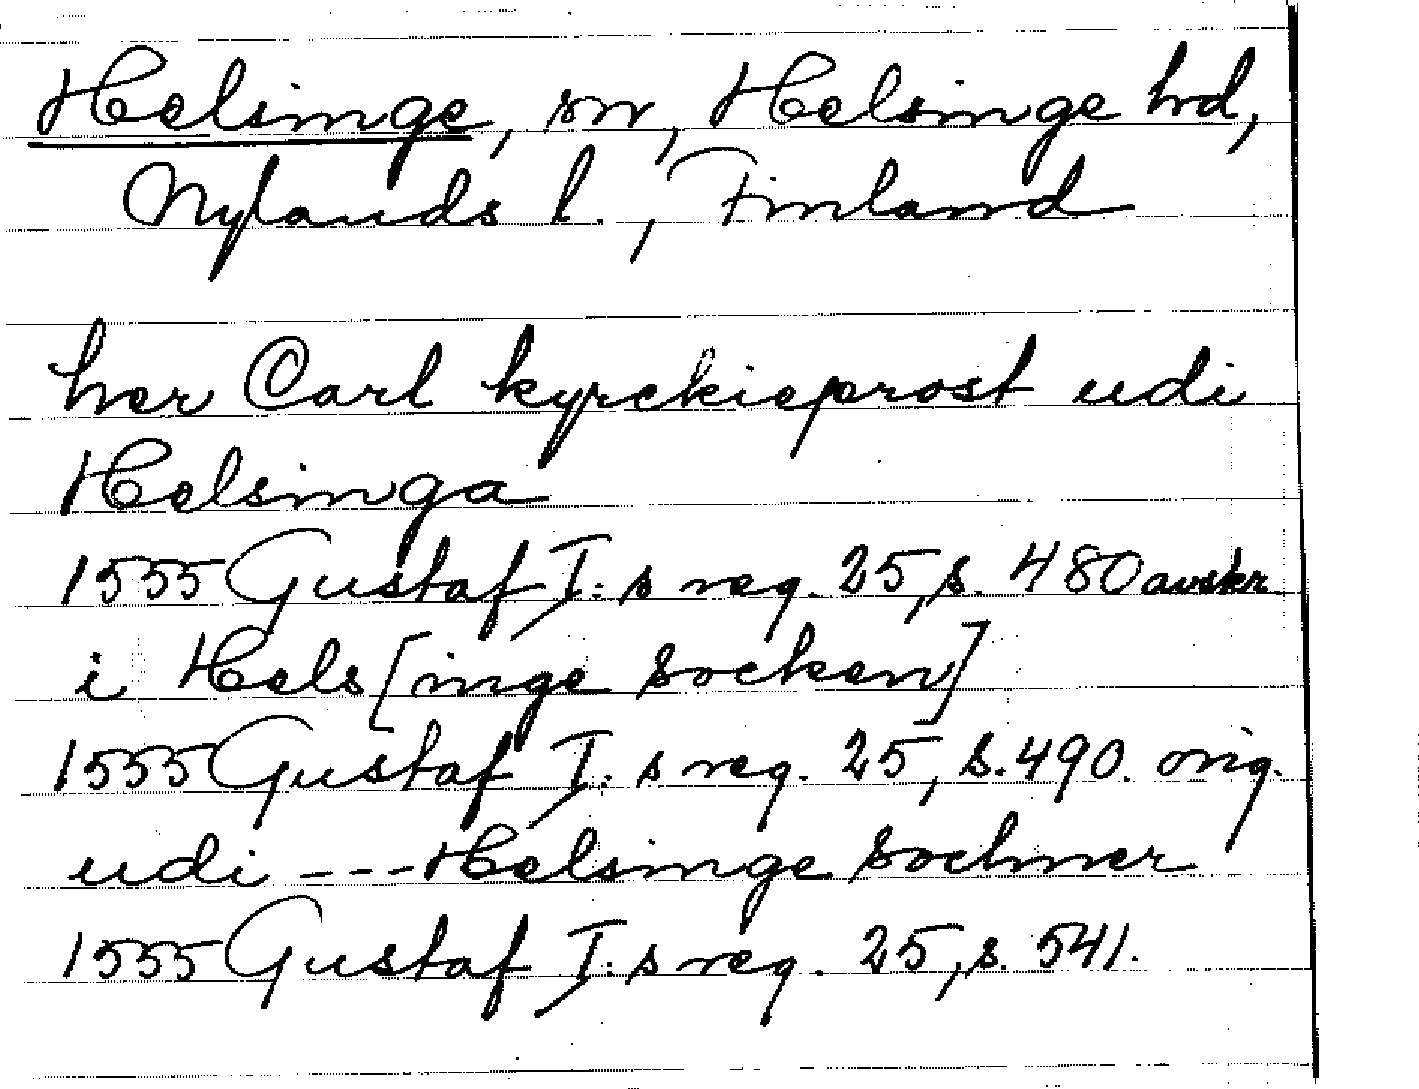 Helsinge, sn, Helsinge hd,
Nylands l., Finland
her Carl kyrckieprost udi
Helsinga
1555 Gustaf I:s reg. 25, s. 480 avskr.
i Hels[inge socken]
1555 Gustaf I:s reg. 25, s. 490. orig.
udi --- Helsinge sochner
1555 Gustaf I:s reg. 25, s. 541.